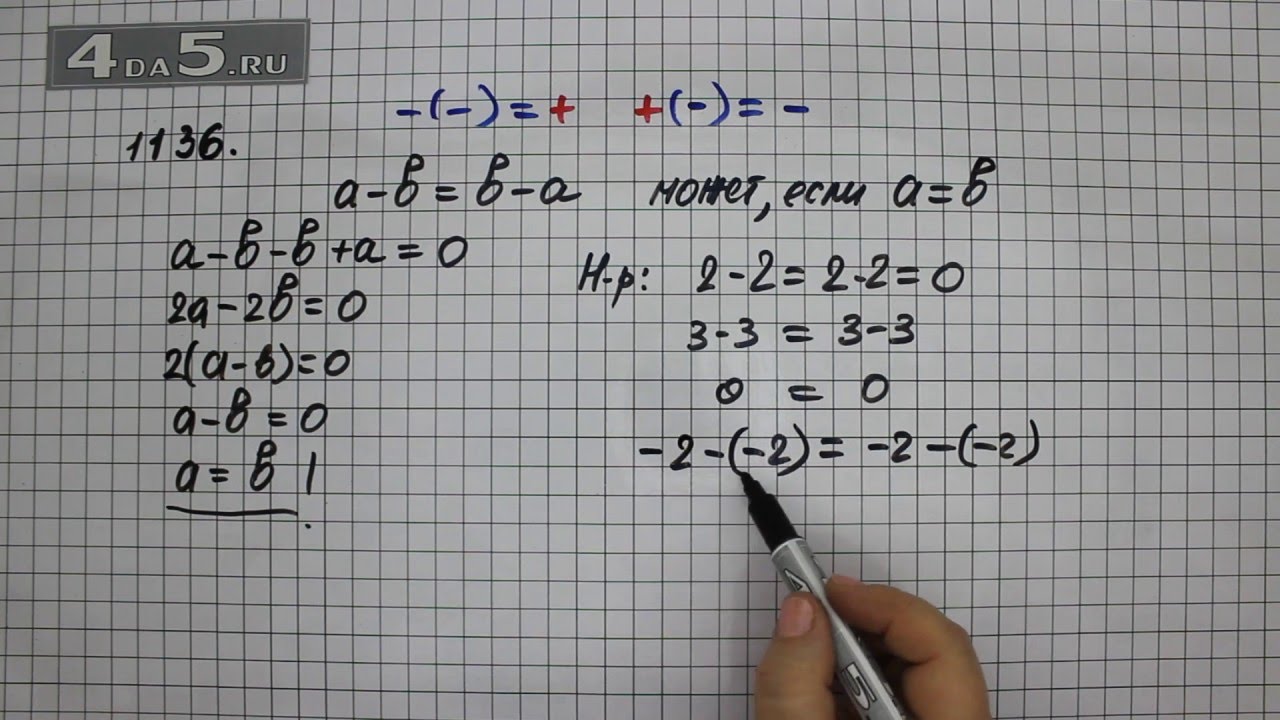 4DA5.RU
-(-) = +    +(-) = -
1136.
a-в = в-a    может, если a=в
a-в-в+a=0
2a-2в=0
2(a-в)=0
a-в=0
a=в
Н-р: 2-2=2-2=0
3-3 = 3-3
0 = 0
-2-(-2) = -2-(-2)
5